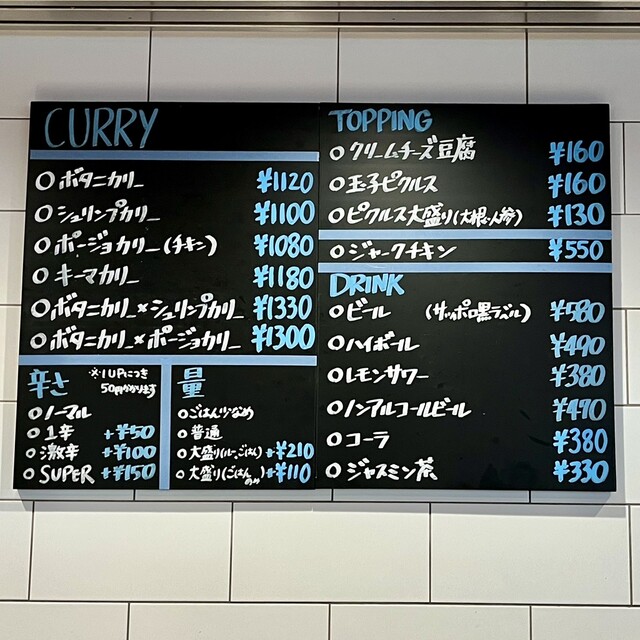 CURRY
○ボタニカリー ¥1120
○シュリンプカリー ¥1100
○ポージョカリー(チキン) ¥1080
○キーマカリー ¥1180
○ボタニカリー×シュリンプカリー ¥1330
○ボタニカリー×ポージョカリー ¥1300
辛さ ※1UPにつき
50円かかります
○ノーマル
○1辛 +¥50
○激辛 +¥100
○SUPER +¥150
量
○ごはん少なめ
○普通
○大盛り(ルー、ごはん) +¥210
○大盛り(ごはんのみ) +¥110
TOPPING
○クリームチーズ豆腐 ¥160
○玉子ピクルス ¥160
○ピクルス大盛り(大根、人参) ¥130
○ジャークチキン ¥550
DRINK
○ビール (サッポロ黒ラベル) ¥580
○ハイボール ¥490
○レモンサワー ¥380
○ノンアルコールビール ¥490
○コーラ ¥380
○ジャスミン茶 ¥330